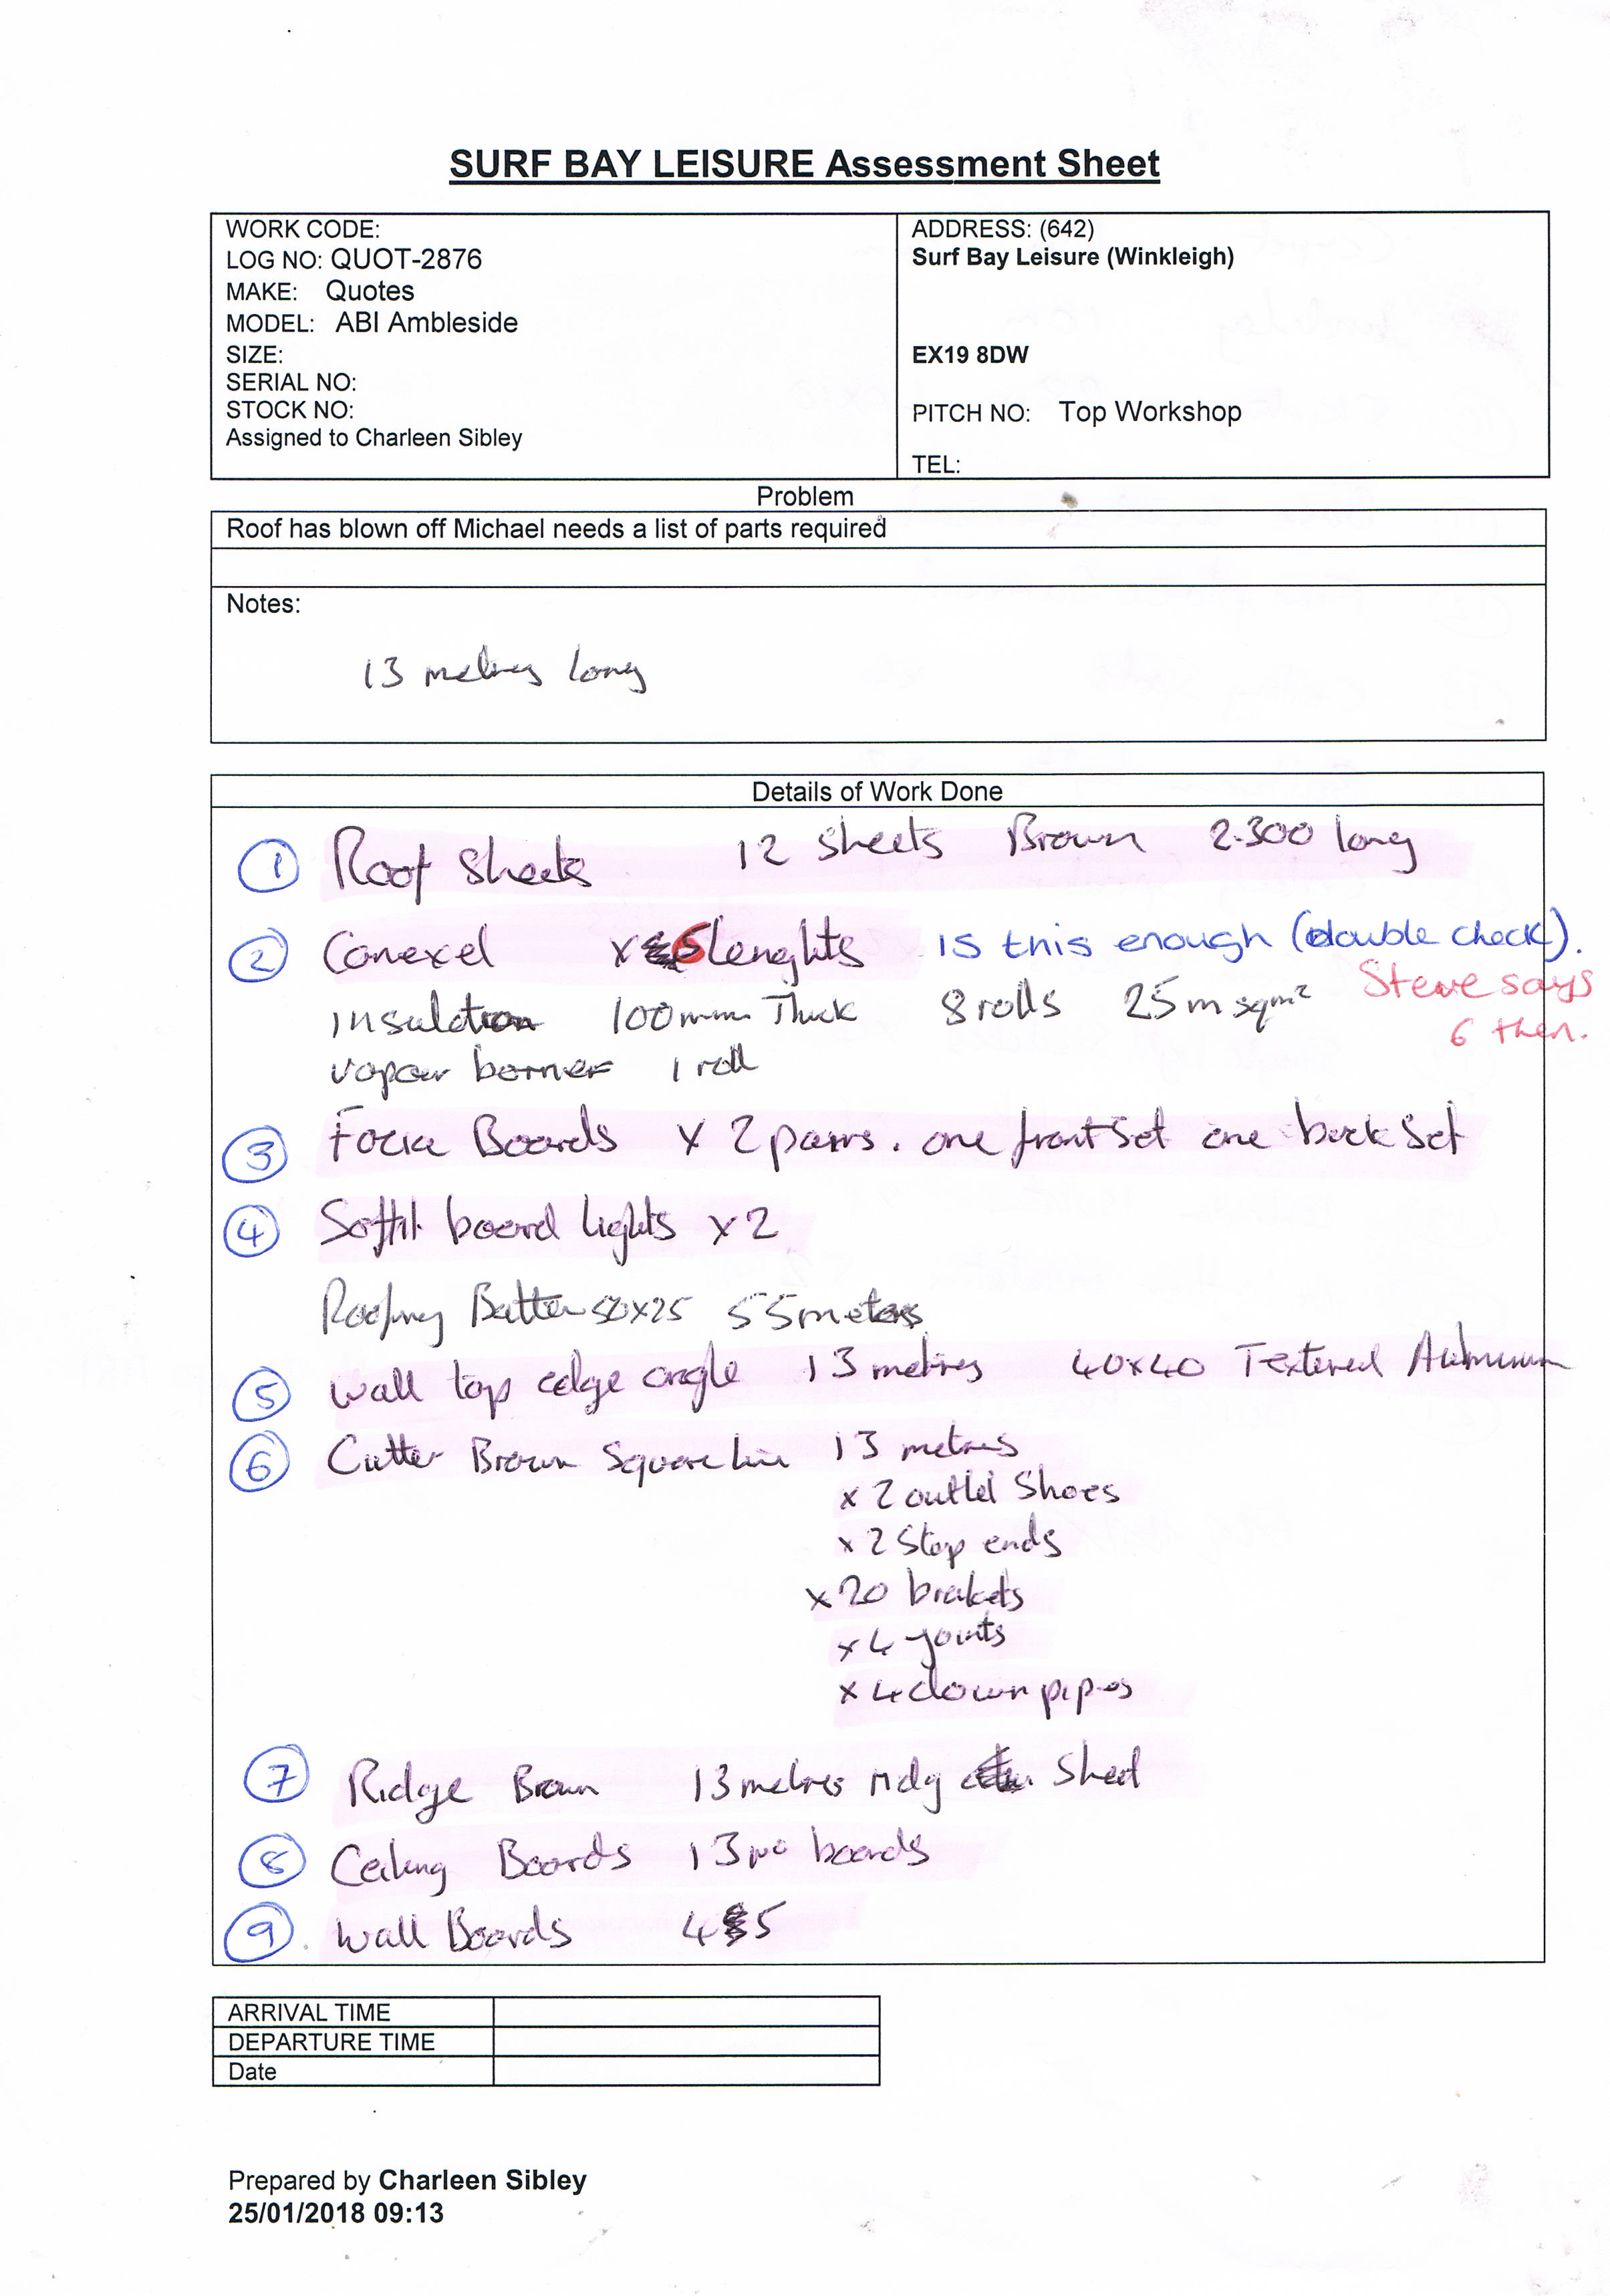 SURF BAY LEISURE Assessment Sheet
WORK CODE:
LOG NO: QUOT-2876
MAKE: Quotes
MODEL: ABI Ambleside
SIZE:
SERIAL NO:
STOCK NO:
Assigned to Charleen Sibley
ADDRESS: (642)
Surf Bay Leisure (Winkleigh)
EX19 8DW
PITCH NO: Top Workshop
TEL:
Problem
Roof has blown off Michael needs a list of parts required
Notes:
13 metres long
Details of Work Done
1 Roof Sheets 12 sheets Brown 2.300 long
2 Conexel x lenghts is this enough (double check).
Steve says
insulation 100mm Thick 8 rolls 25m sqm²
6 then.
vapour barrier 1 roll
3 Facia Boards x 2 pairs. one front set one back set
4 Soffit board lights x2
Roofing Batten 50x25 55 meters
5 wall top edge angle 13 metres 40x40 Textured
6 Gutter Brown Square line 13 metres
x 2 outlet Shoes
x 2 Stop ends
x 20 brakets
x 4 joints
x 4 down pipes
7 Ridge Brown 13 metres Sheet
8 Ceiling Boards 13 no boards
9. Wall Boards 45
ARRIVAL TIME
DEPARTURE TIME
Date
Prepared by Charleen Sibley
25/01/2018 09:13